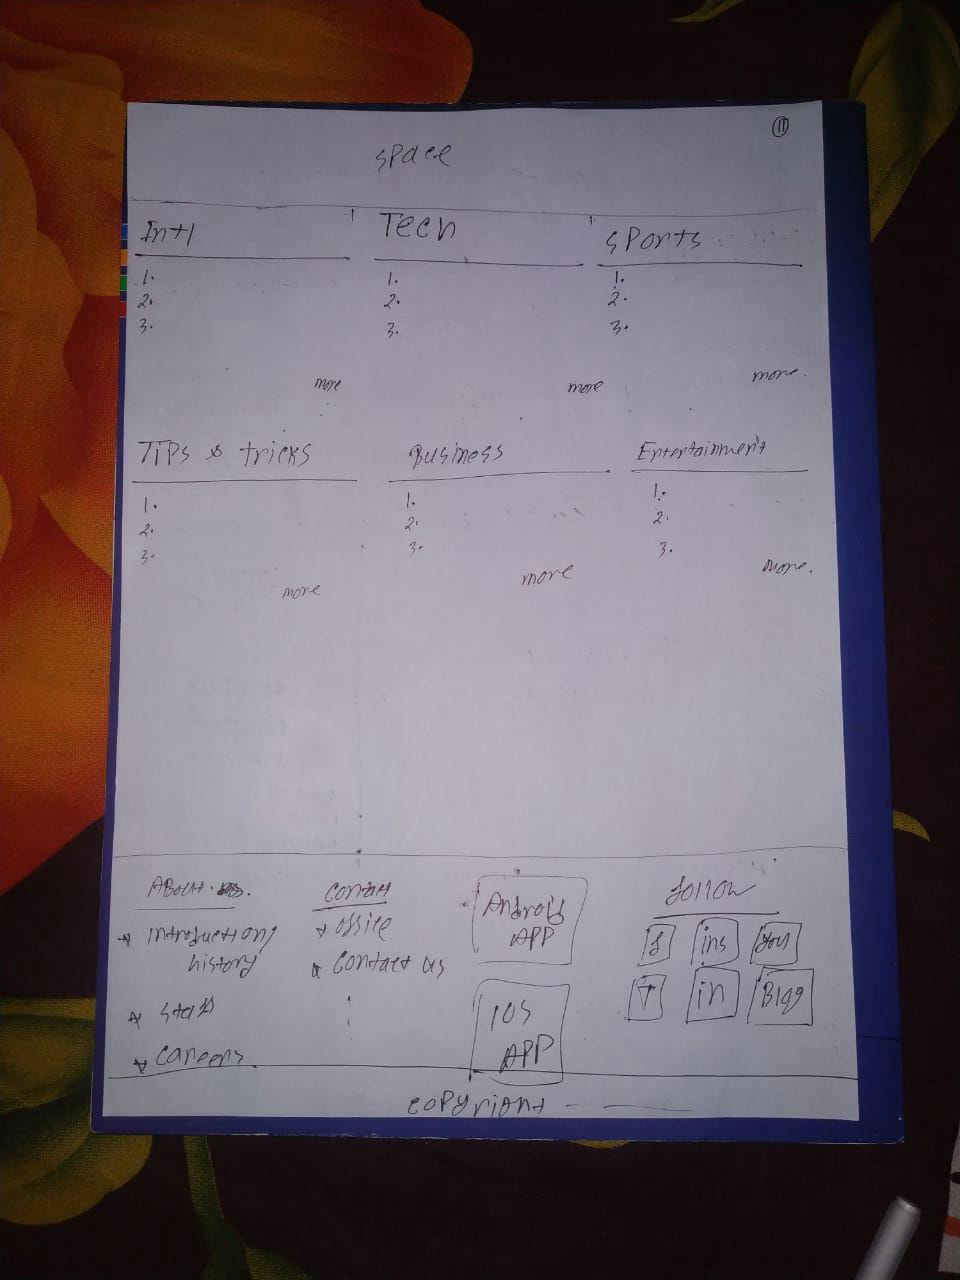 11
space
Intl
1.
2.
3.
more
Tech
1.
2.
3.
more
Sports
1.
2.
3.
more.
Tips & tricks
1.
2.
3.
more
Business
1.
2.
3.
more
Entertainment
1.
2.
3.
more.
About
* Introduction/
history
* Staff
* Careers
Contact
* Office
* Contact us
Android
APP
IOS
APP
Follow
f ins you
T in Blog
copyright